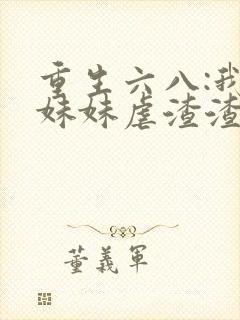 重生六八:我
妹妹虐渣渣
董義軍